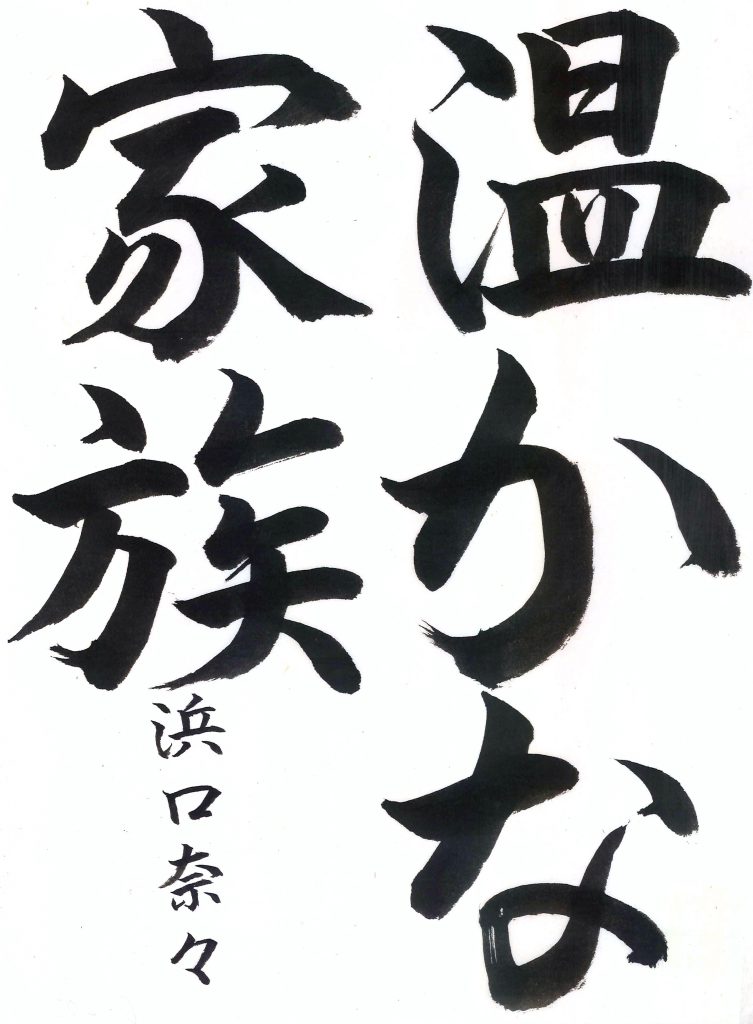 温かな
家族
浜口奈々